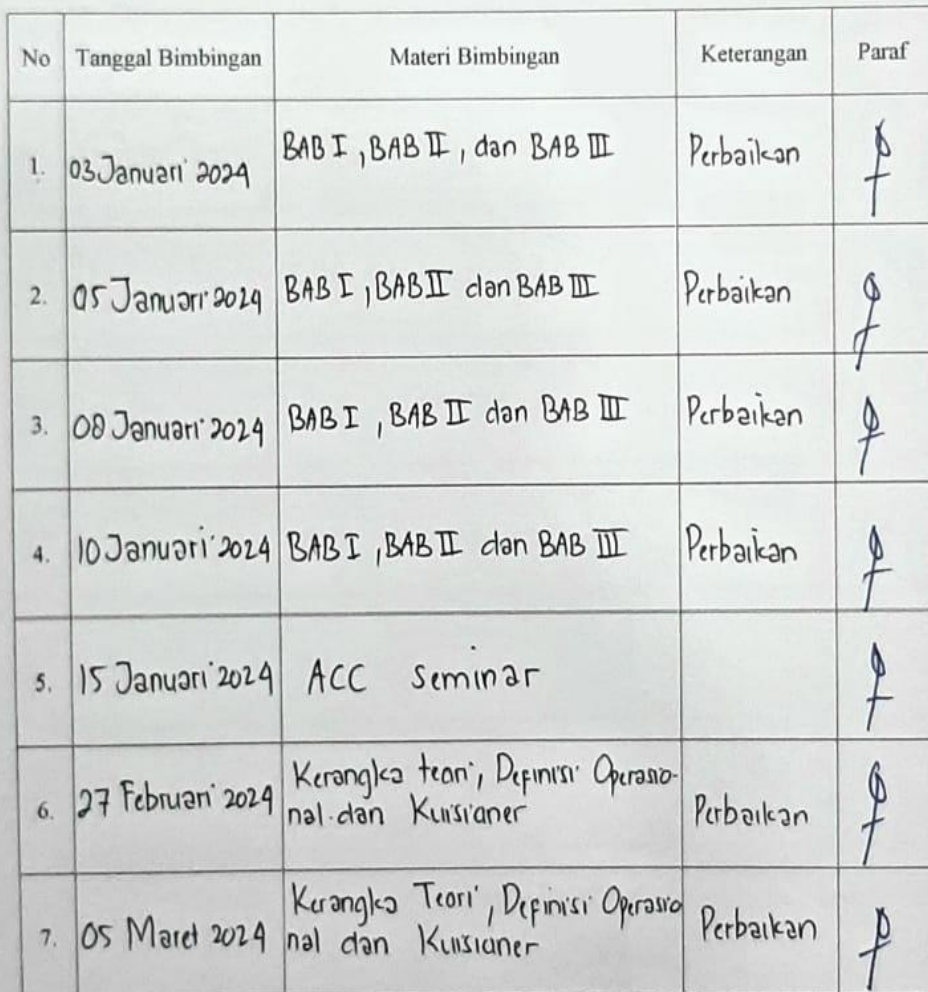 No Tanggal Bimbingan Materi Bimbingan Keterangan Paraf
1. 03 Januari 2024 BAB I, BAB II, dan BAB III Perbaikan
2. 05 Januari 2024 BAB I, BAB II dan BAB III Perbaikan
3. 08 Januari 2024 BAB I, BAB II dan BAB III Perbaikan
4. 10 Januari 2024 BAB I, BAB II dan BAB III Perbaikan
5. 15 Januari 2024 ACC Seminar
6. 27 Februari 2024 Kerangka teori, Definisi Operasio-
nal dan Kuisianer Perbaikan
7. 05 Maret 2024 Kerangka Teori, Definisi Operasio
nal dan Kuisianer Perbaikan